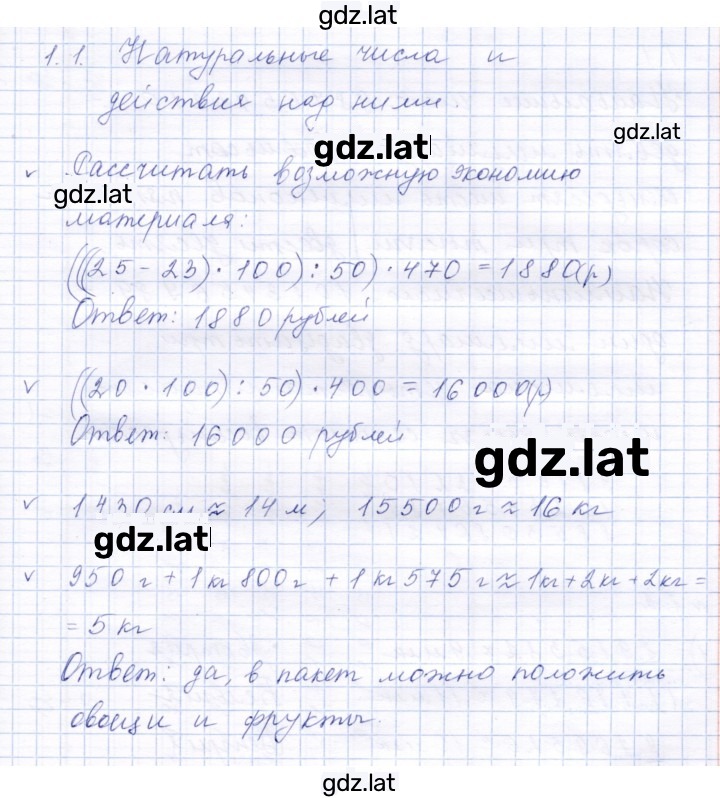 gdz.lat
1.1. Натуральные числа и
действия над ними
gdz.lat
gdz.lat
v Рассчитать возможную экономию
gdz.lat
материала:
(((25 - 23) · 100) : 50) · 470 = 1880(р)
Ответ: 1880 рублей
v ((20 · 100) : 50) · 400 = 16000(р)
Ответ: 16000 рублей
gdz.lat
v 1430 см ≈ 14 м; 15500 г ≈ 16 кг
gdz.lat
v 950 г + 1 кг 800 г + 1 кг 575 г ≈ 1кг + 2кг + 2кг =
= 5 кг
Ответ: да, в пакет можно положить
овощи и фрукты.
gdz.lat